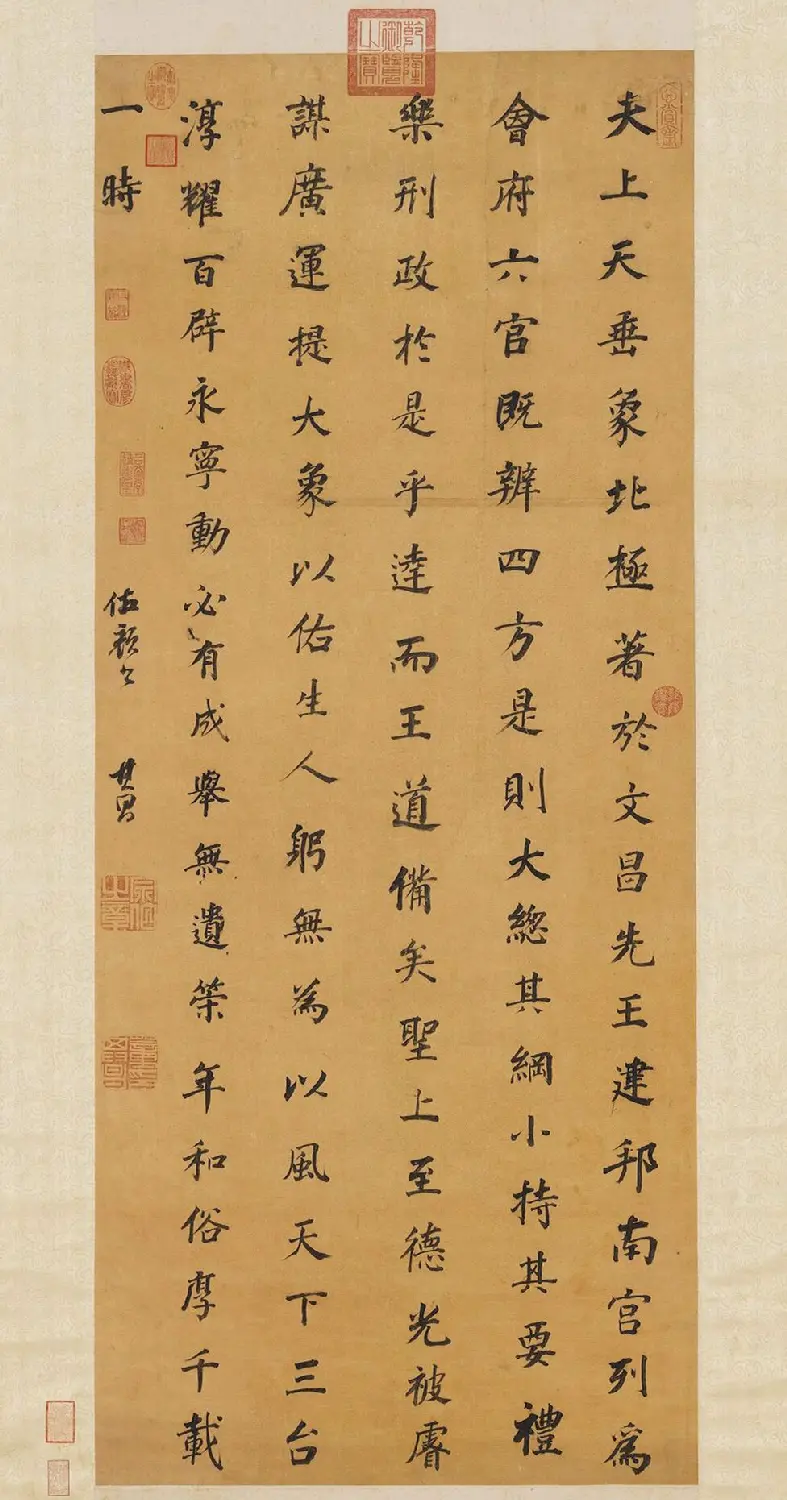 夫上天垂象北極著於文昌先王建邦南宮列為
會府六官既辨四方是則大總其綱小持其要禮
樂刑政於是乎達而王道備矣聖上至德光被睿
謀廣運提大象以佑生人躬無為以風天下三台
淳耀百辟永寧動必有成舉無遺策年和俗厚千載
一時
其昌
乾隆御覽之寶